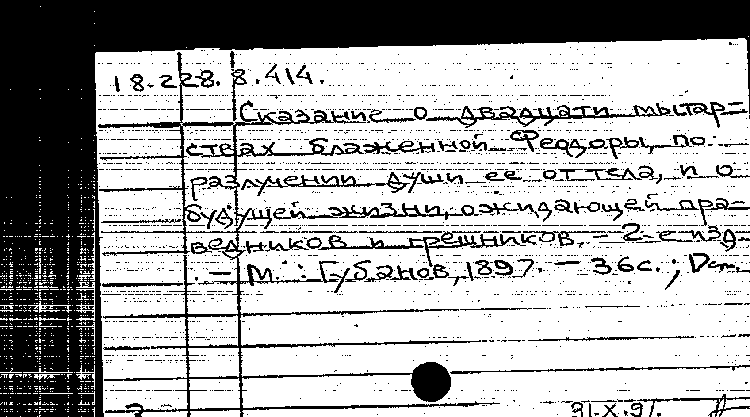 18.228.8.414.
Сказание о двадцати мытар-
ствах блаженной Феодоры, по
разлучении души ее от тела, и о
будущей жизни, ожидающей пра-
ведников и грешников. - 2-е изд.
- М. : Губанов, 1897. - 36с. ;
31.X.91.